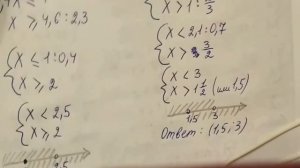 x ⩾ 4,6 : 2,3
x ⩽ 1 : 0,4
x ⩾ 2
x < 2,5
x ⩾ 2
x < 2,1 : 0,7
x > 3/2
x < 3
x > 1 1/2 (или 1,5)
1,5 3
Ответ : (1,5 ; 3)